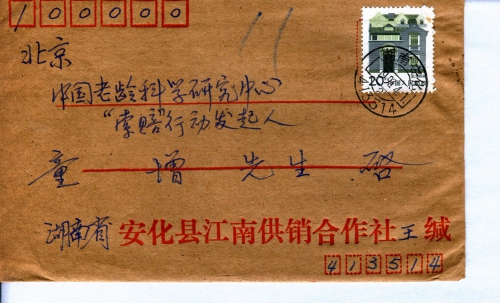 100000
北京
中国老龄科学研究中心
“索赔”行动发起人
童增先生启
湖南省安化县江南供销合作社王缄
413514
20